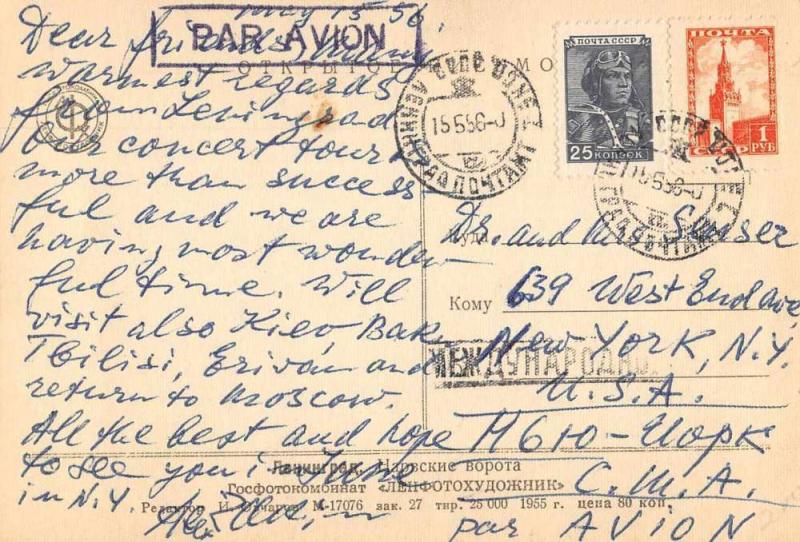 May 15 56
Dear friends,
PAR AVION
warmest regards
from Leningrad
Our concert tour
more than success
ful and we are
having most wonder-
ful time. Will
visit also Kiev, Bak
Tbilisi, Erivan and
return to Moscow.
All the best and hope
to see you in June
in N.Y.
15 5 56
ПОЧТА СССР
25 КОПЕЕК
ПОЧТА
СССР
1 РУБ
Куда
Dr. and Mrs.
Кому
639 West End ave,
New York, N.Y.
МЕЖДУНАРОДНОЕ
U.S.A.
Нью-Йорк
С.Ш.А.
par AVION
Ленинград. Царские ворота
Госфотокомбинат «ЛЕНФОТОХУДОЖНИК»
Редактор И. М-17076 зак. 27 тир. 25 000 1955 г. цена 80 коп.